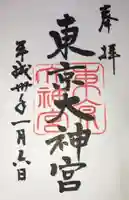 奉拝
東京大神宮
東京
大神宮
平成卅年一月六日